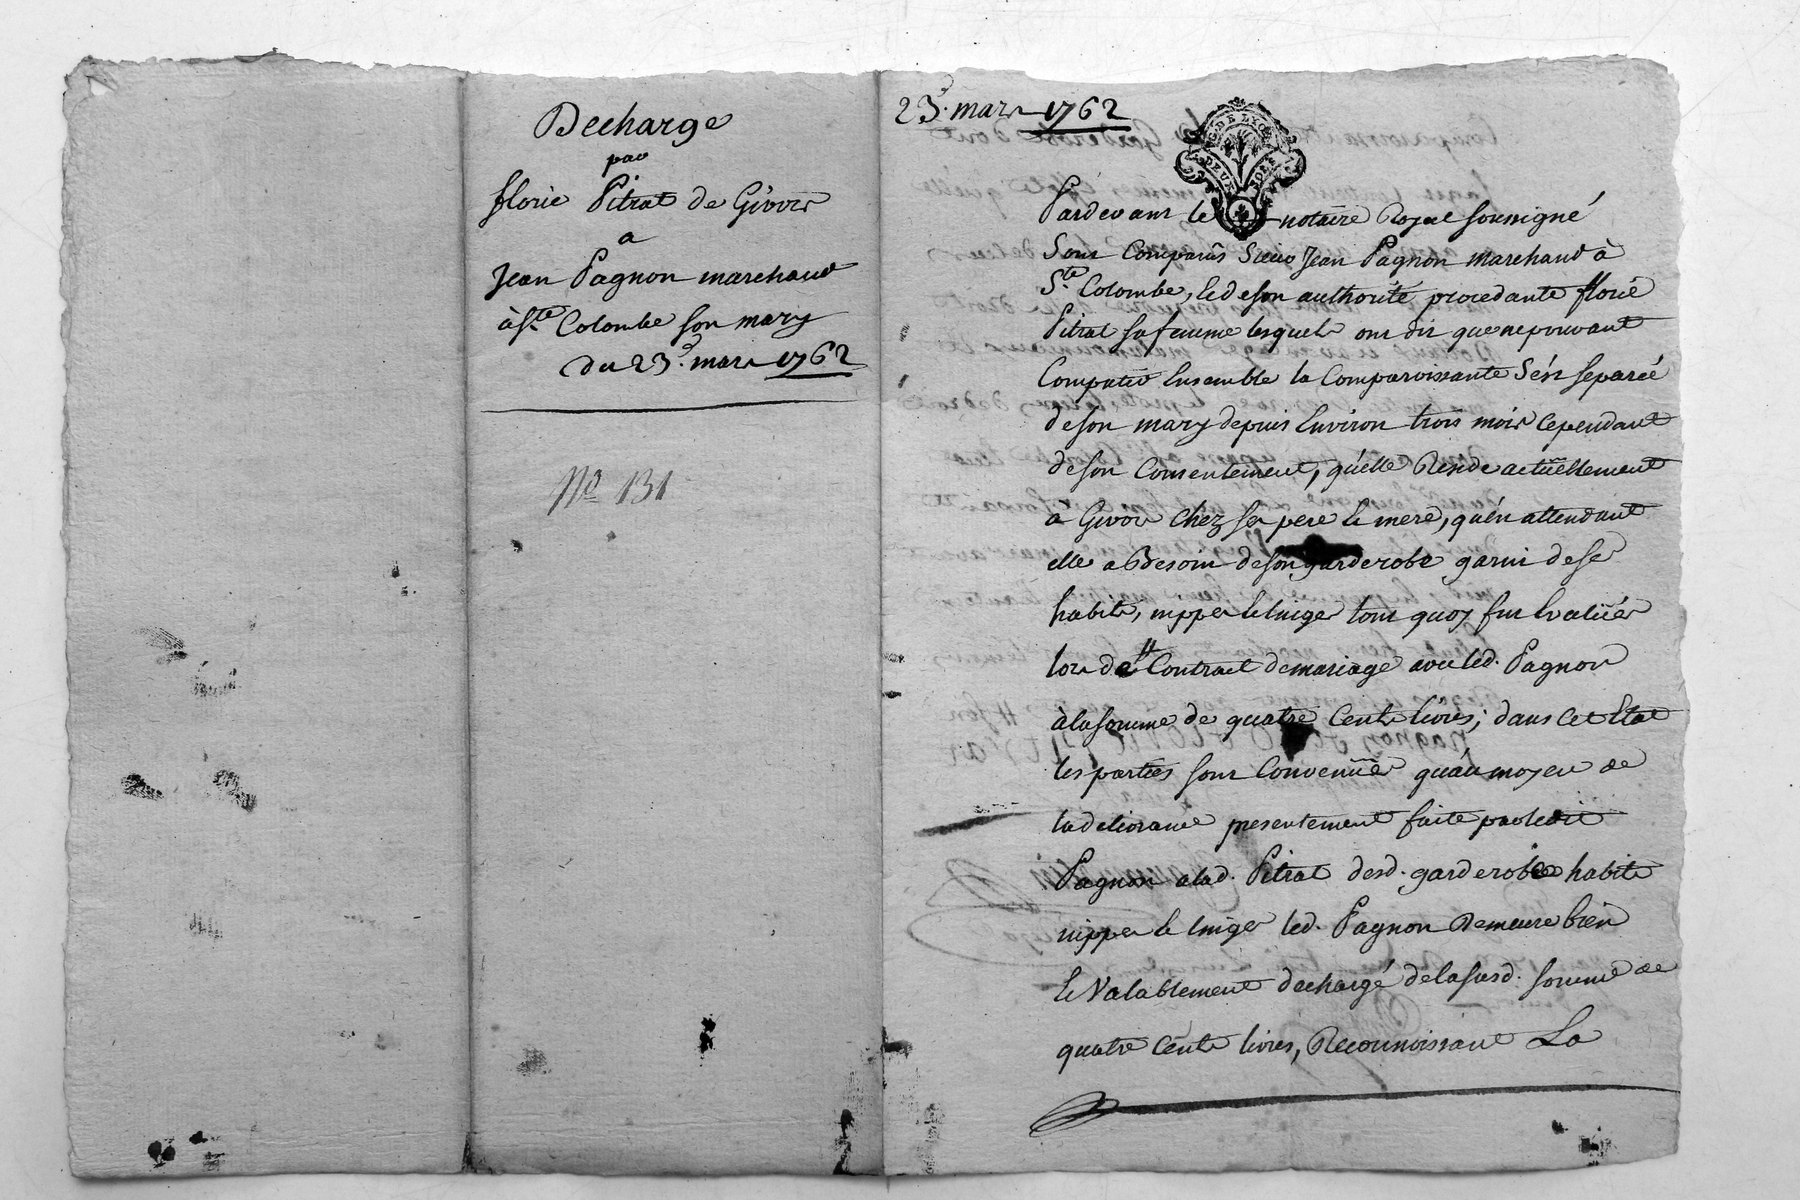 Decharge
par
florie Pitrat de Givors
a
Jean Pagnon marchand
à Ste Colombe son mary
du 23e. mars 1762
No 131
23e. mars 1762
G. DE LYON
DEUX SOLS
Pardevant le notaire Royal soussigné
Sont Comparus Sieur Jean Pagnon marchand à
Ste Colombe, & de son authorité procedante florie
Pitrat sa femme lesquels ont dit que ne pouvant
Compatir Ensemble la Comparoissante S'est separée
de son mary depuis Environ trois mois Cependant
de son Consentement, qu'elle Reside actuëllement
a Givors chez ses pere & mere, qu'en attendant
elle a Besoin de son garderobe garni de ses
habits, nippes & linges tout quoy fut Evalüés
lors du Contract de mariage avec led. Pagnon
à la somme de quatre Cents livres; dans Cet Etat
les parties sont Convenües qu'au moyen de
la delivrance presentement faite par ledit
Pagnon a lad. Pitrat desd. garderobe habits
nippes & linges led. Pagnon Demeure bien
& Valablement dechargé de la susd. somme de
quatre Cents livres, Reconnoissant La